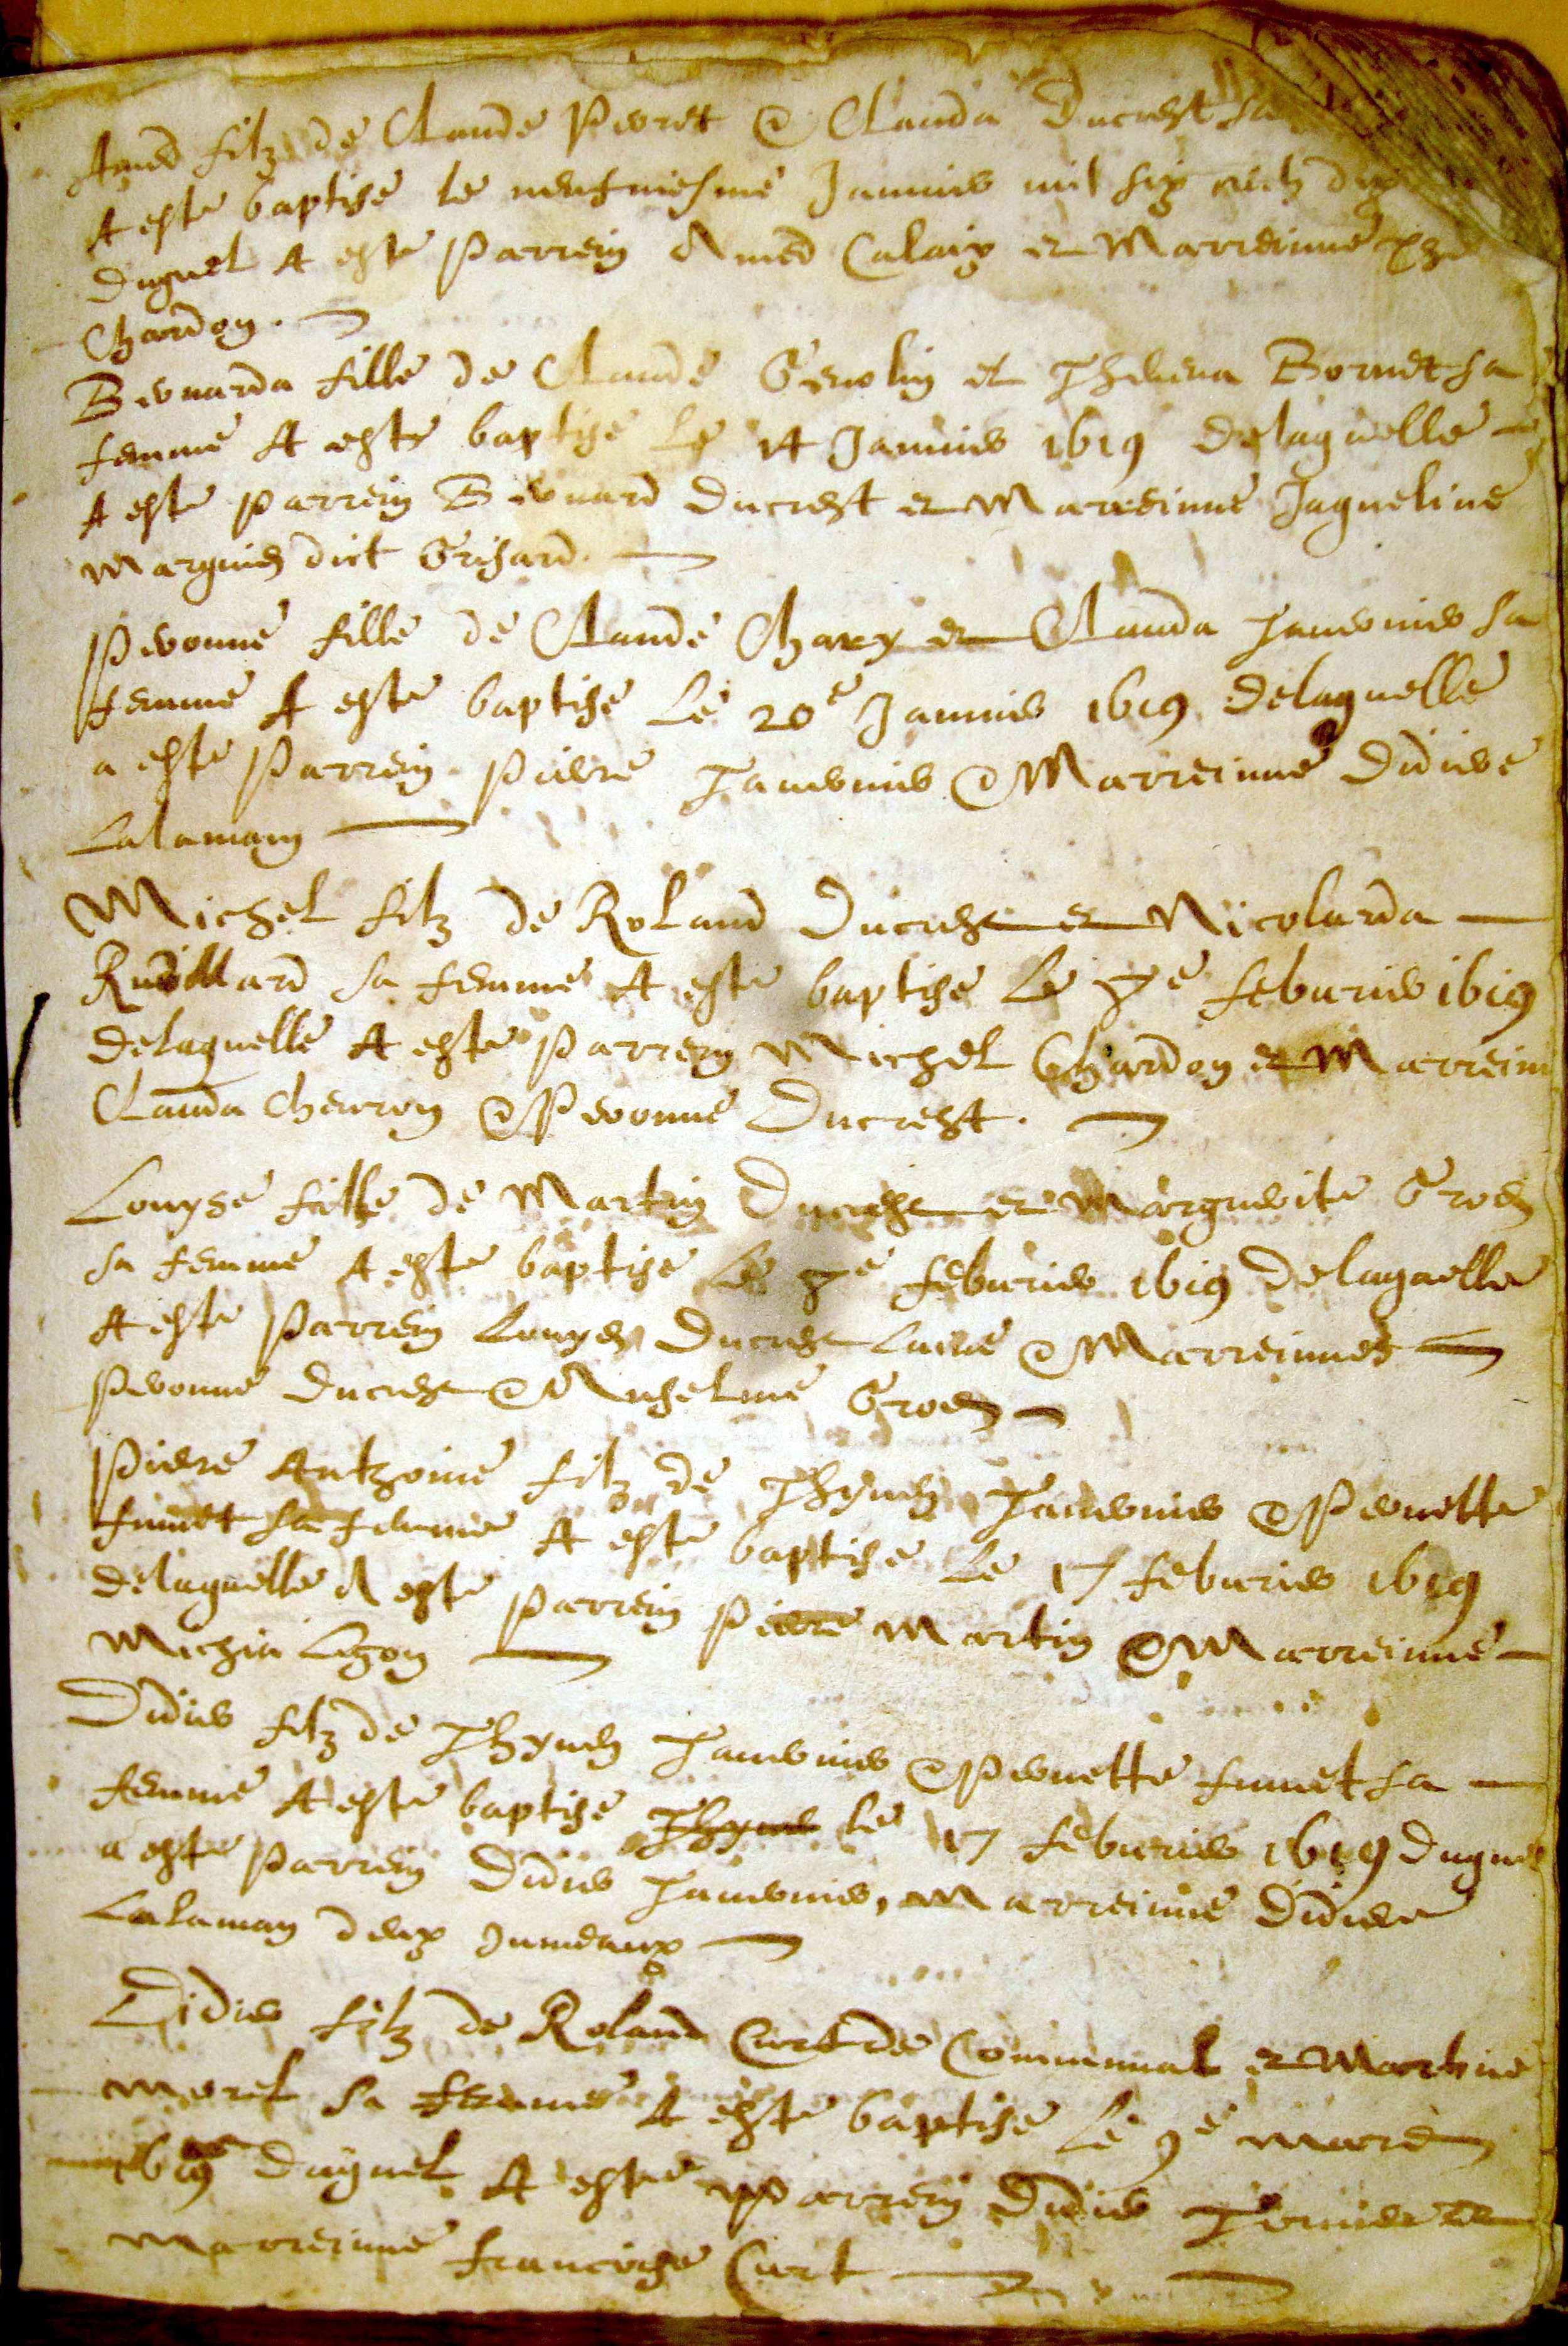 Amed filz de Claude Perret & Clauda Ducrest sa
A este baptise le neufviesme Janvier mil six centz dix
duquel A este Parrein Amed Calaix et Marreinne
Chardon.
Bernarda fille de Claude et Thevena Bornet sa
femme A este baptise Le 14 Janvier 1619 delaquelle
A este parrein Bernard Ducrest et Marreinne Jaqueline
Marguin dict Grisard.
Pernonne fille de Claude Chary et Clauda Tavernier sa
femme A este baptise Le 20e Janvier 1619 delaquelle
a este Parrein Pierre Tavernier & Marreinne Didiere
Lalaman
Michel filz de Roland Ducrest et Nicolarda
sa femme A este baptise Le 7e febvrier 1619
delaquelle A este Parrein Michel Chardon et Marrein
Clauda Chevron & Pernonne Ducrest.
Louyse fille de Martin Ducrest et Marguerite Groz
sa femme A este baptise Le 7e febvrier 1619 delaquelle
A este Parrein Louys Ducrest & Marreinnes
Pernonne Ducrest & Groz
Pierre Anthoine filz de Tavernier & Pernette
fumet sa femme A este baptise Le 17 febvrier 1619
delaquelle A este Parrein Pierre Martin & Marreinne
Michia
Didier filz de Tavernier & Pernette fumet sa
femme A este baptise le 17 febvrier 1619 duquel
a este Parrein Didier Tavernier, Marreinne Didiere
Lalaman deux Jumeaux
Didier filz de Roland Curt de Communal et Martine
Morel sa femme A este baptise Le 9e mars
1619 duquel A este Parrein Didier et
Marreinne francoise Curt